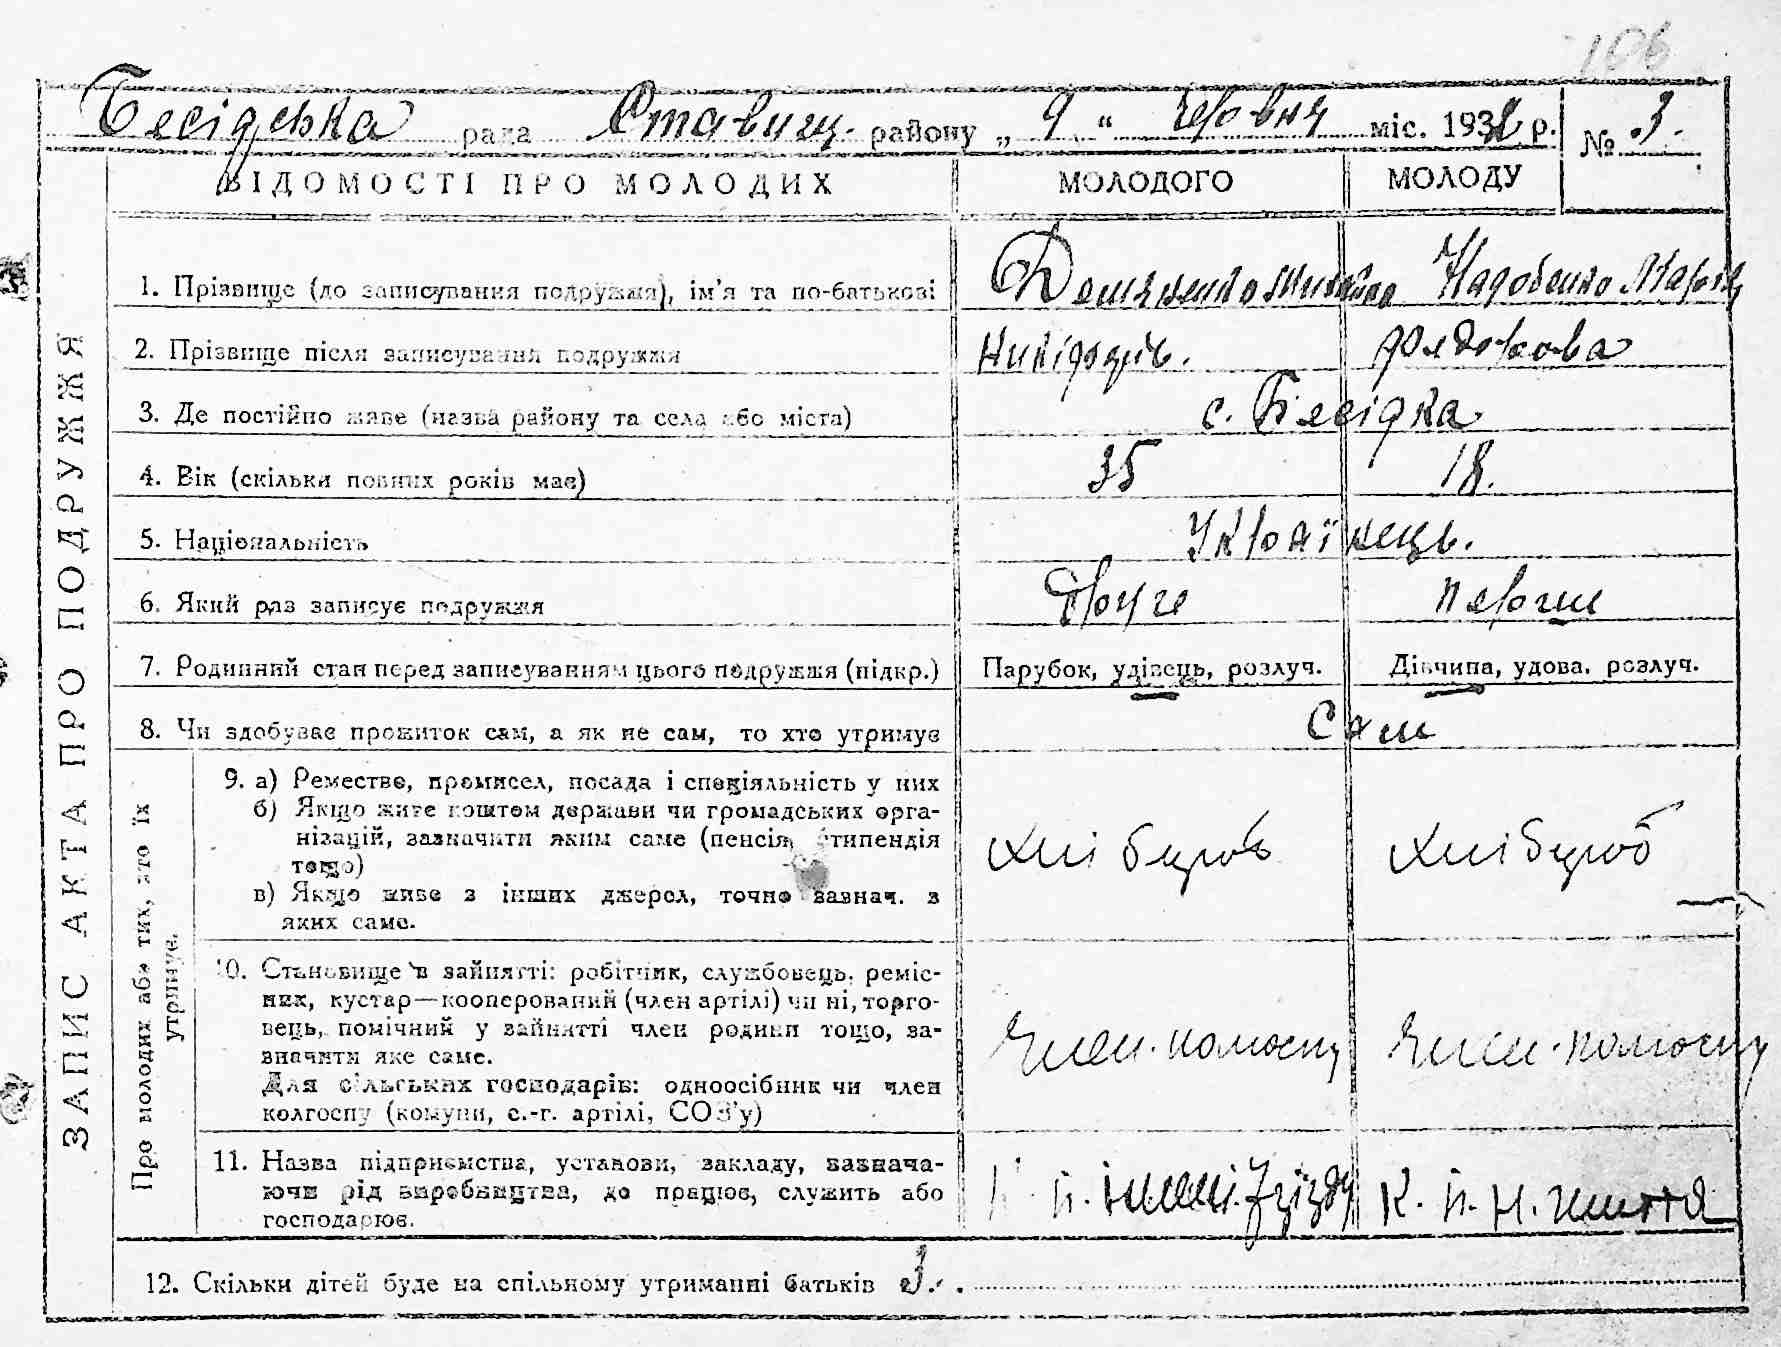 106
Бесідська рада Ставищ. району „ 9 “ червня міс. 1932 р. № 3.
ВІДОМОСТІ ПРО МОЛОДИХ МОЛОДОГО МОЛОДУ
ЗАПИС АКТА ПРО ПОДРУЖЖЯ
1. Прізвище (до записування подружжя), ім’я та по-батькові Надобенко
2. Прізвище після записування подружжя
3. Де постійно живе (назва району та села або міста) с. Бесідка
4. Вік (скільки повних років має) 35 18.
5. Національність Українець.
6. Який раз записує подружжя Друге перше
7. Родинний стан перед записуванням цього подружжя (підкр.) Парубок, удівець, розлуч. Дівчина, удова, розлуч.
8. Чи здобуває прожиток сам, а як не сам, то хто утримує Сам
Про молодих або тих, хто їх
утримує.
9. а) Ремество, промисел, посада і спеціяльність у них
б) Якщо живе коштом держави чи громадських орга-
нізацій, зазначити яким саме (пенсія, стипендія
тощо)
в) Якщо живе з інших джерел, точно зазнач. з
яких саме.
Хлібороб Хлібороб
10. Становище в зайнятті: робітник, службовець, реміс-
ник, кустар—кооперований (член артілі) чи ні, торго-
вець, помічний у зайнятті член родини тощо, за-
значити яке саме.
Для сільських господарів: одноосібник чи член
колгоспу (комуни, с.-г. артілі, СОЗ’у)
Член колгоспу Член колгоспу
11. Назва підприємства, установи, закладу, зазнача-
ючи рід виробництва, де працює, служить або
господарює.
К. П. Н. життя
12. Скільки дітей буде на спільному утриманні батьків 3.